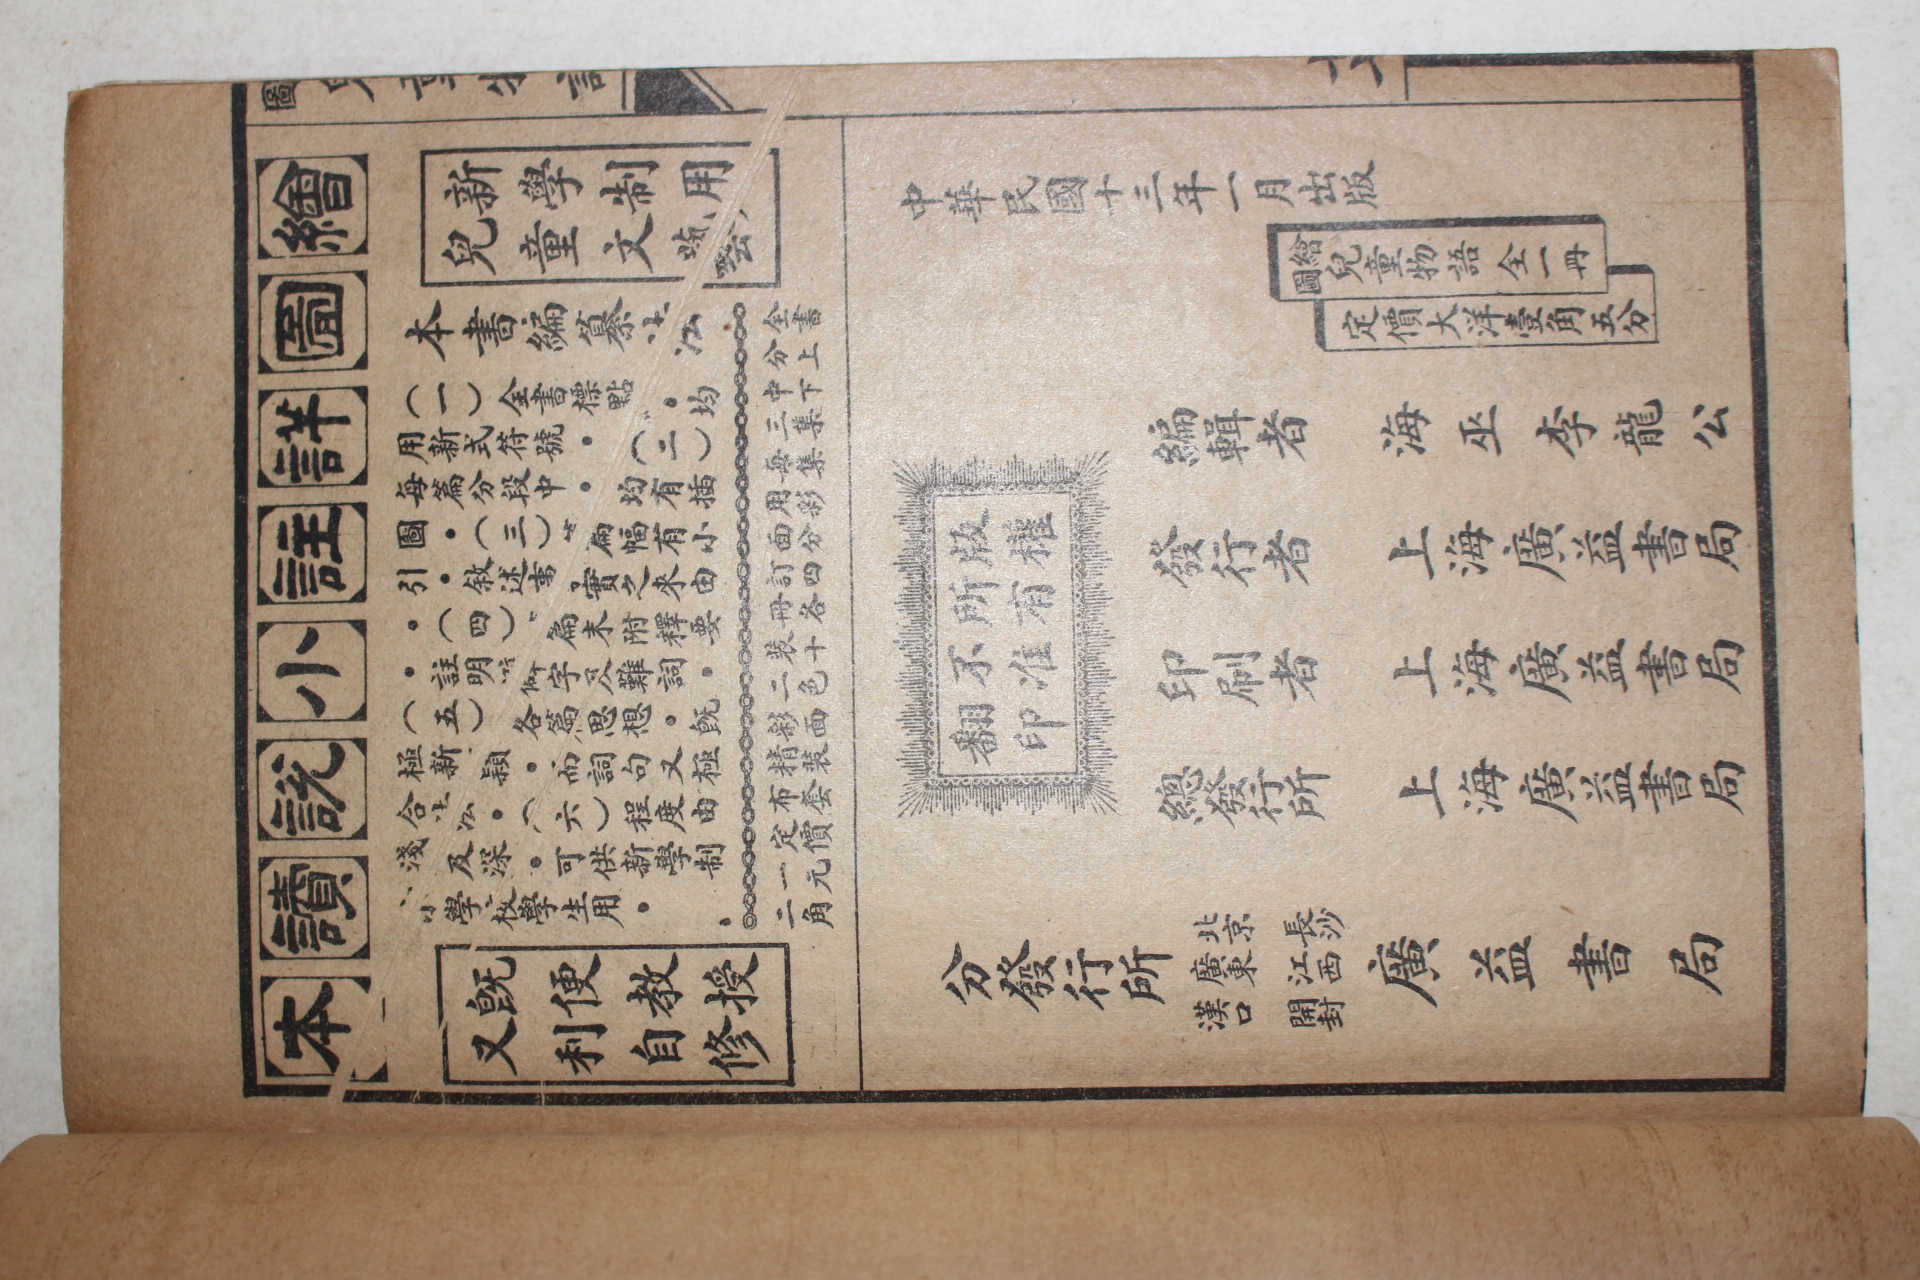 繪圖詳註小說讀本
新學制用
兒童文藝
本書編纂法
（一）全書標點均
用新式符號•（二）
每篇分段中•均有插
圖•（三）篇幅前有小
引•敘述事實之來由
•（四）篇末附釋要
•註明字及難詞•
（五）各篇思想•既
極新穎•而詞句又極
合法•（六）程度由
淺及深•可供新學制
小學校學生用•
全書分上中下三集每集用彩面分訂四冊各裝十二色彩面精裝布套定價一元二角
既便教授
又利自修
中華民國十三年一月出版
繪圖兒童物語 全一冊
定價大洋壹角五分
編輯者 海巫李龍公
發行者 上海廣益書局
印刷者 上海廣益書局
總發行所 上海廣益書局
版權所有
不准翻印
分發行所 北京 長沙 廣東 江西 漢口 開封 廣益書局